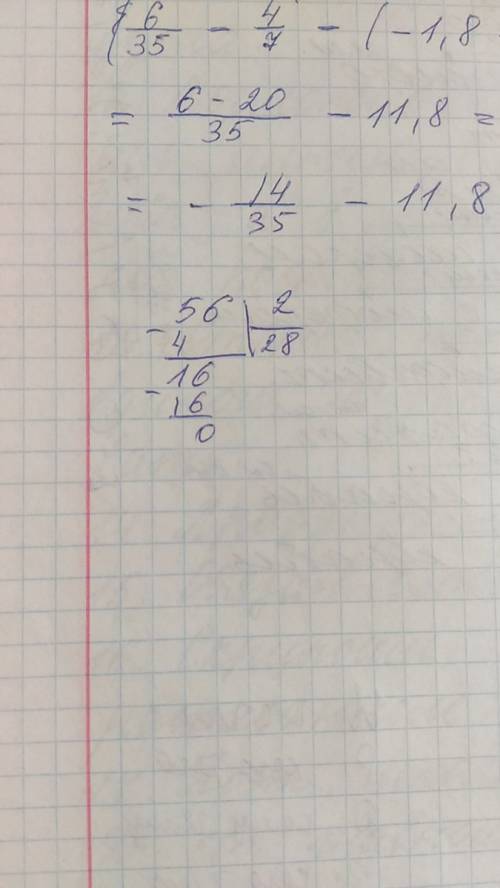 ( 6/35 - 4/7 - (-1,8
= (6 - 20)/35 - 11,8 =
= - 14/35 - 11,8
- 56 | 2
4 | 28
- 16
16
0